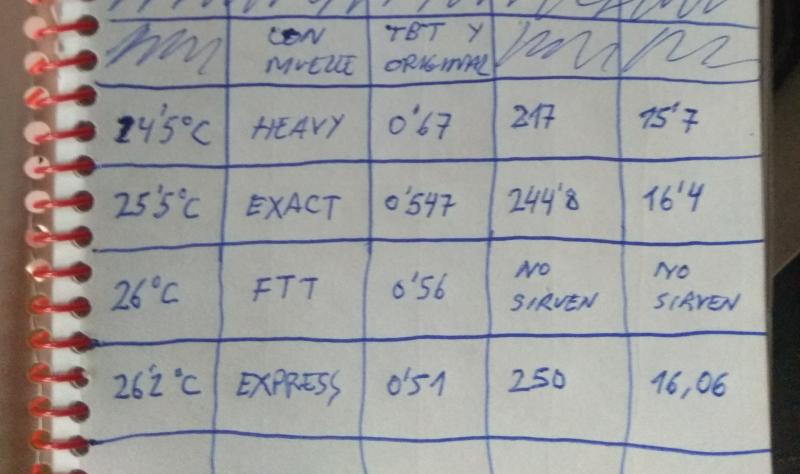 CON MUELLE TBT Y ORIGINAL
24'5°C HEAVY 0'67 217 15'7
25'5°C EXACT 0'547 244'8 16'4
26°C FTT 0'56 NO SIRVEN NO SIRVEN
26'2°C EXPRESS 0'51 250 16,06